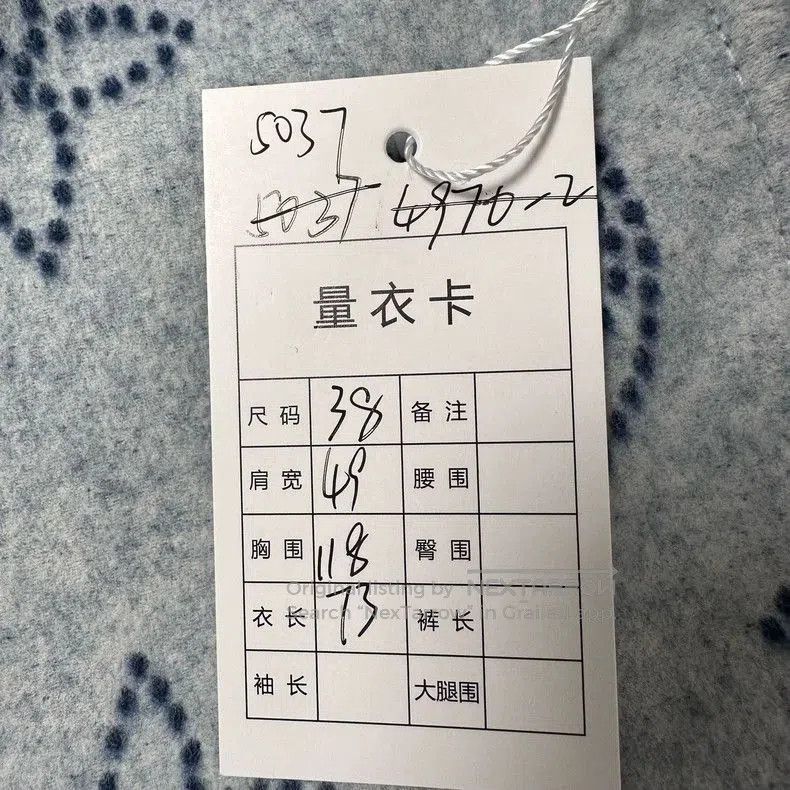 5037
5037 4970-2
量衣卡
尺码 38 备注
肩宽 49 腰围
胸围 118 臀围
Original listing by NEXTARROW
衣长 73 裤长
Search "NexTarrow" in Grailed app
袖长 大腿围